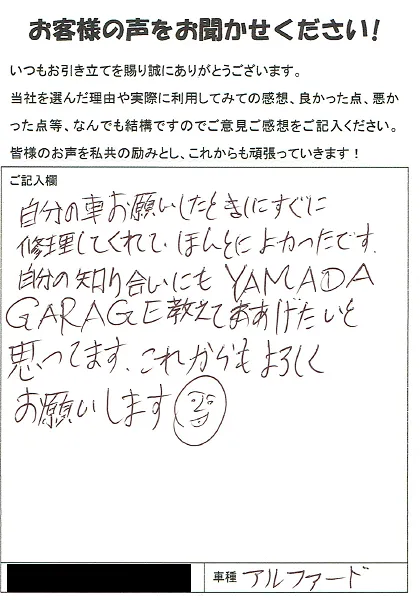 お客様の声をお聞かせください!
いつもお引き立てを賜り誠にありがとうございます。
当社を選んだ理由や実際に利用してみての感想、良かった点、悪か
った点等、なんでも結構ですのでご意見ご感想をご記入ください。
皆様のお声を私共の励みとし、これからも頑張っていきます!
ご記入欄
自分の車お願いしたときにすぐに
修理してくれて、ほんとによかったです.
自分の知り合いにも YAMADA
GARAGE教えてあげたいと
思ってます、これからもよろしく
お願いします
車種 アルファード